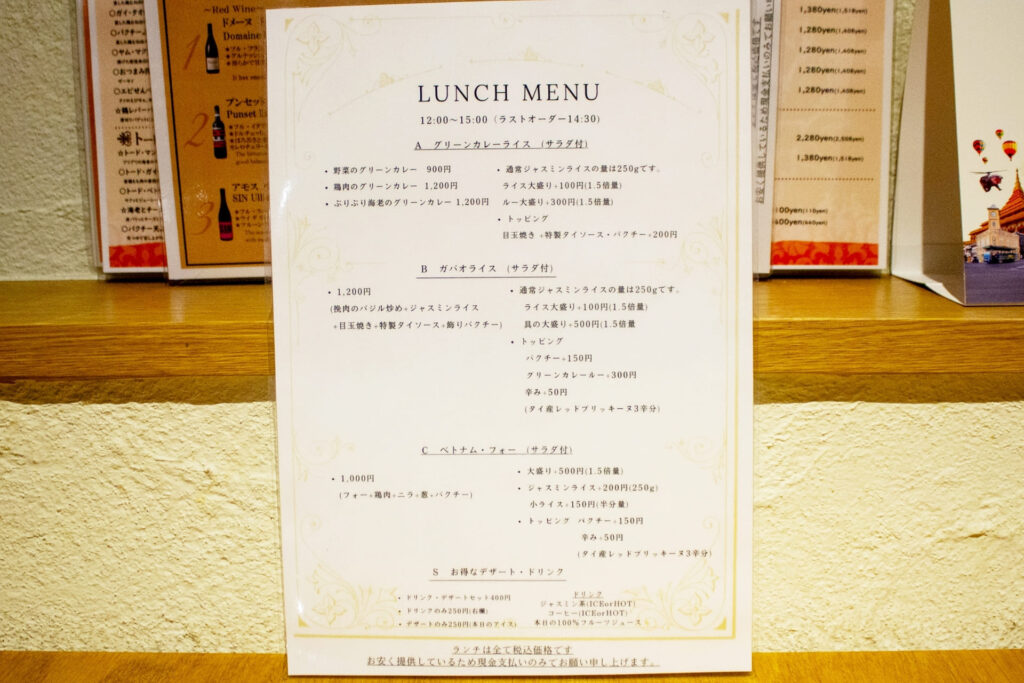 LUNCH MENU
12:00～15:00（ラストオーダー14:30）
A グリーンカレーライス （サラダ付）
・野菜のグリーンカレー 900円
・鶏肉のグリーンカレー 1,200円
・ぷりぷり海老のグリーンカレー 1,200円
・通常ジャスミンライスの量は250gです。
ライス大盛り+100円(1.5倍量)
ルー大盛り+300円(1.5倍量)
・トッピング
目玉焼き +特製タイソース・パクチー+200円
B ガパオライス （サラダ付）
・1,200円
(挽肉のバジル炒め+ジャスミンライス
+目玉焼き+特製タイソース+飾りパクチー)
・通常ジャスミンライスの量は250gです。
ライス大盛り+100円(1.5倍量)
具の大盛り+500円(1.5倍量
・トッピング
パクチー+150円
グリーンカレールー+300円
辛み+50円
(タイ産レッドプリッキーヌ3辛分)
C ベトナム・フォー （サラダ付）
・1,000円
(フォー+鶏肉+ニラ+葱+パクチー)
・大盛り+500円(1.5倍量)
・ジャスミンライス+200円(250g)
小ライス+150円(半分量)
・トッピング パクチー+150円
辛み+50円
(タイ産レッドブリッキーヌ3辛分)
S お得なデザート・ドリンク
・ドリンク・デザートセット400円
・ドリンクのみ250円(右欄)
・デザートのみ250円(本日のアイス)
ドリンク
ジャスミン茶(ICEorHOT)
コーヒー(ICEorHOT)
本日の100%フルーツジュース
ランチは全て税込価格です
お安く提供しているため現金支払いのみでお願い申し上げます。
～Red Wine～
ドメーヌ
Domaine
1
2
プンセット
Punset
3
アモス
SIN
1,380yen(1,518yen)
1,280yen(1,408yen)
1,280yen(1,408yen)
1,280yen(1,408yen)
1,280yen(1,408yen)
2,280yen(2,508yen)
1,380yen(1,518yen)